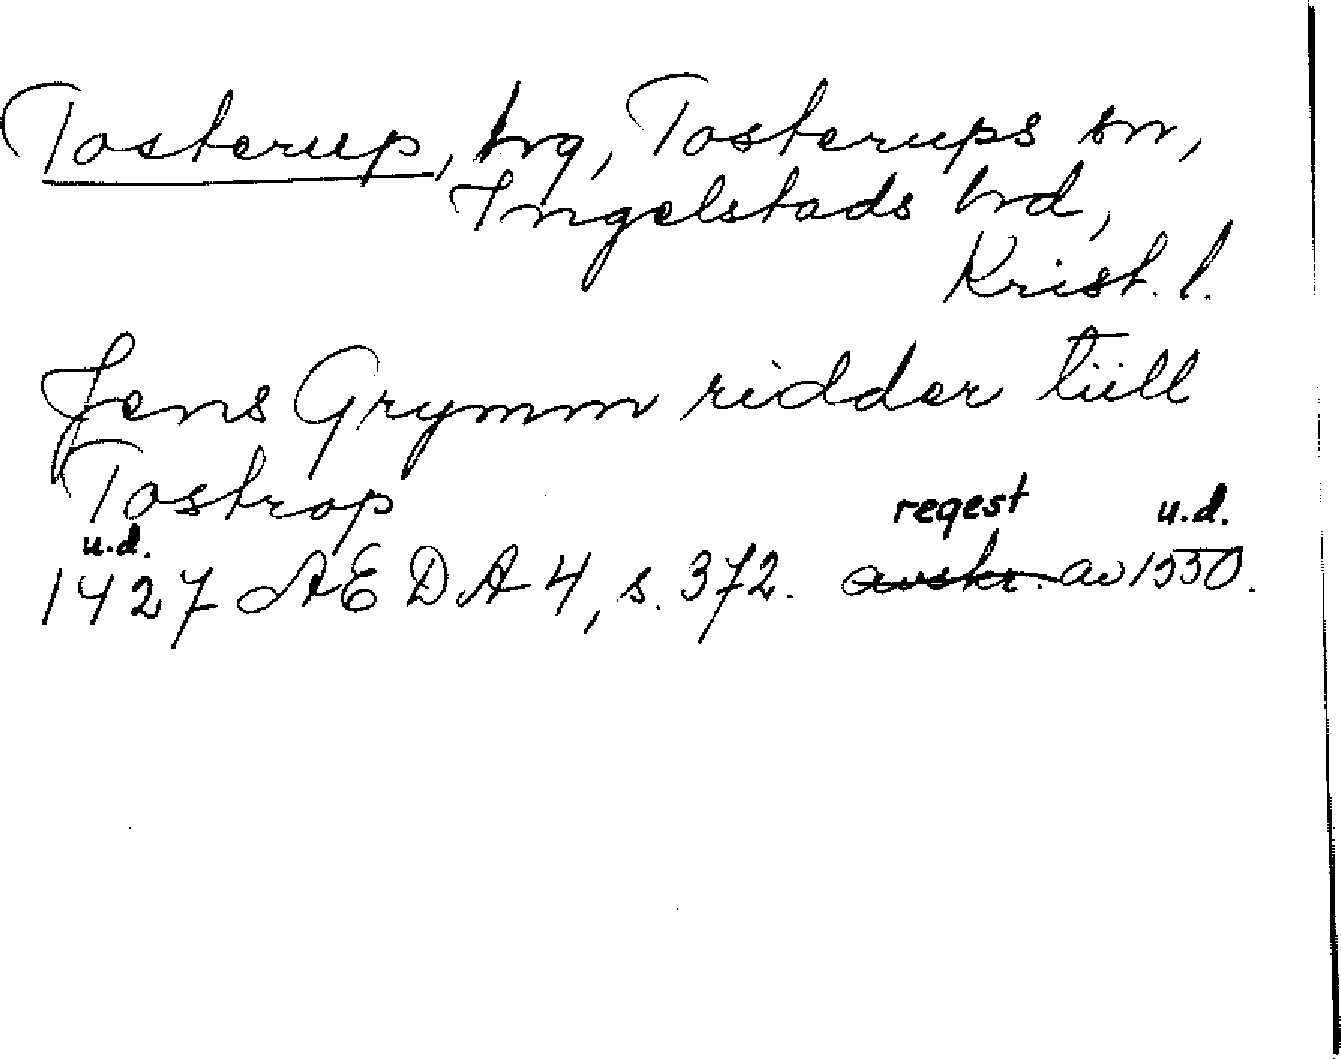 Tosterup, hrg, Tosterups sn,
Ingelstads hrd,
Krist. l.
Jens Grymm ridder tiill
Tostrop
regest u.d.
u.d.
1427 ÆDA 4, s. 372. avskr. av 1550.